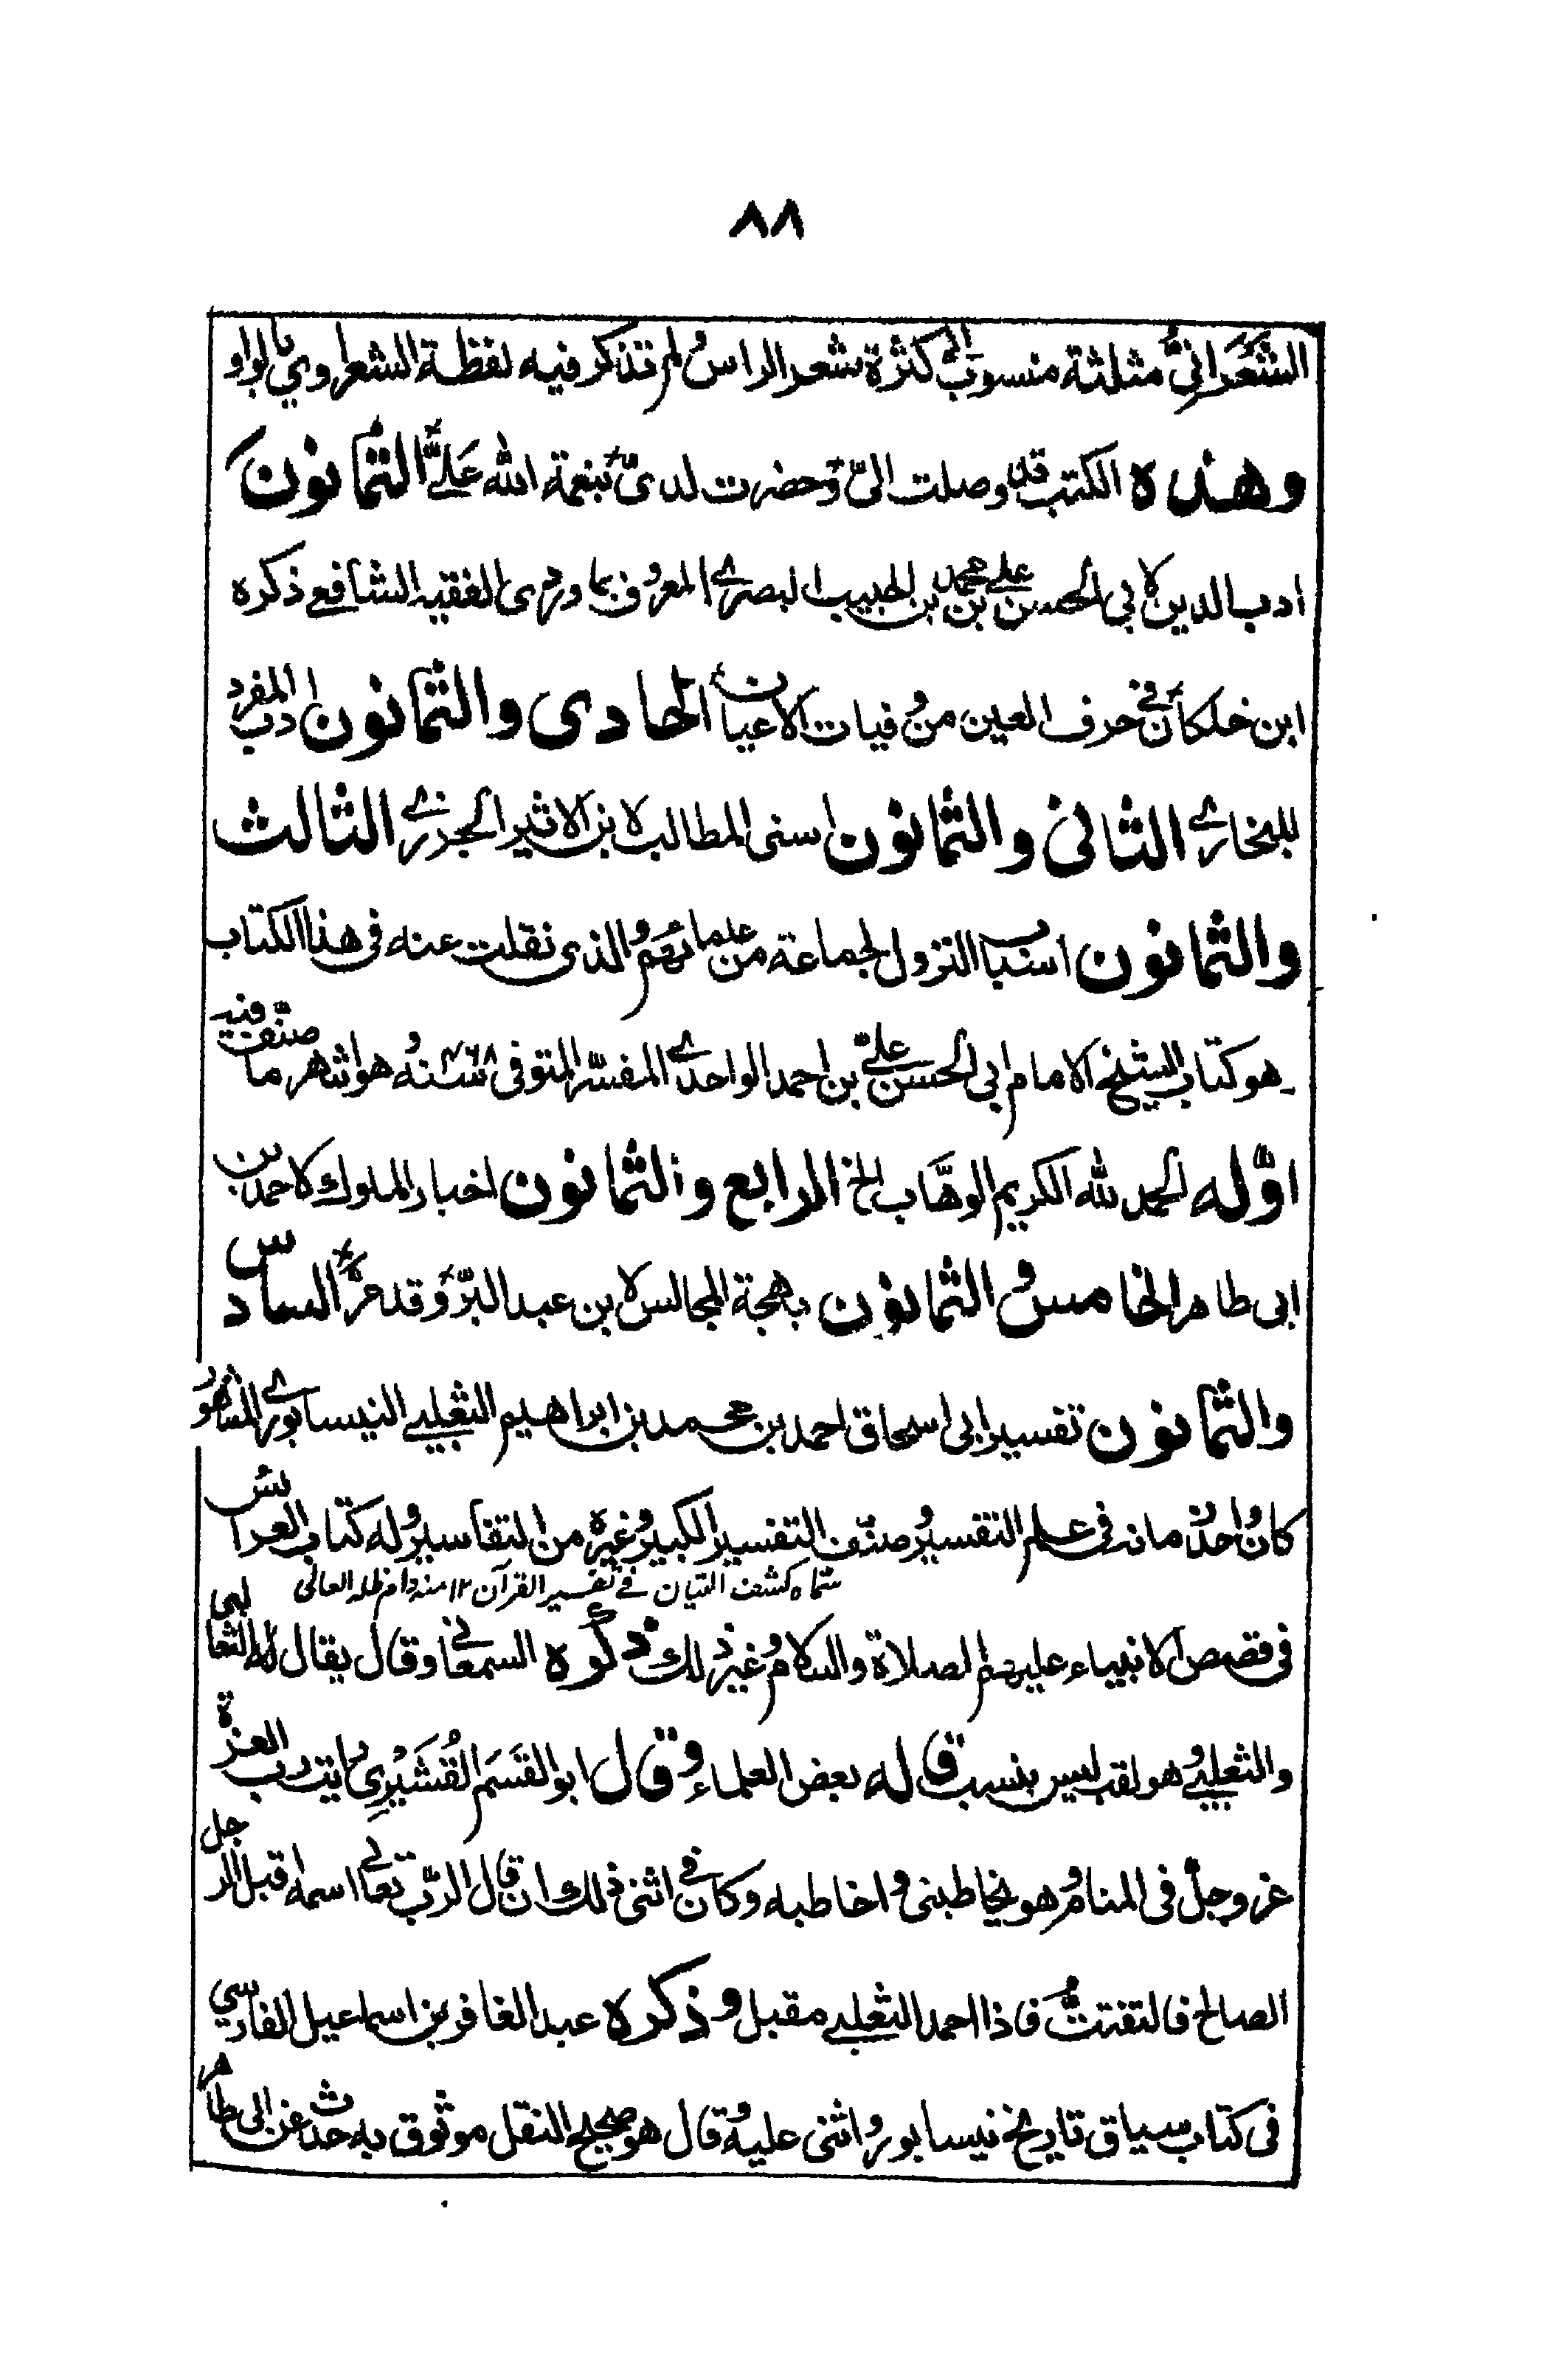 ٨٨
الشَّعَرَانِیُّ مثلثة منسوب الی کثرة شعر الراس ولم تذکر فیه لفظة الشعراوی بالواو
وهذه الکتب قد وصلت الیّ وحضرت لدیّ بنعمة الله عَلَیَّ الثمانون
ادب الدین لابی الحسن علی بن محمد بن الحبیب البصری المعروف بماوردی الفقیه الشافعی ذکره
ابن خلکان فی حرف العین من وفیات الاعیان الحادی والثمانون ادب المفرد
للبخاری الثانی والثمانون اسنی المطالب لابن الاثیر الجزری الثالث
والثمانون اسباب النزول لجماعة من علمائهم والذی نقلت عنه فی هذا الکتاب
هو کتاب الشیخ الامام ابی الحسن علیّ بن احمد الواحدی المفسّر المتوفی سنة ٤٦٨ وهو اشهر ما صنّف فیه
اوّله الحمد لله الکریم الوهّاب الخ الرابع والثمانون اخبار الملوک لاحمد بن
ابی طاهر الخامس والثمانون بهجة المجالس لابن عبد البرّ وقد عزّ السادس
والثمانون تفسیر ابی اسحاق احمد بن محمد بن ابراهیم الثعلبی النیسابوری المشهور
کان واحد زمانه فی علم التفسیر وصنّف التفسیر الکبیر وغیره من التفاسیر وله کتاب العرائس
سماه کشف التبیان فی تفسیر القرآن ١٢ منه دام ظله العالی
فی قصص الانبیاء علیهم الصلاة والسلام وغیر ذلک ذکره السمعانی وقال یقال له الثعالبی
والثعلبی وهو لقب لیس بنسب قاله بعض العلماء وقال ابو القسم القُشَیْرِی رایت رب العزة
عز وجل فی المنام وهو یخاطبنی واخاطبه وکان فی اثنی ذلک ان قال الربّ تعالی اسمه اقبل الرجل
الصالح فالتفتتُّ فاذا احمد الثعلبی مقبل وذکره عبد الغافر بن اسماعیل الفارسی
فی کتاب سیاق تاریخ نیسابور واثنی علیه وقال هو صحیح النقل موثوق به حدث عن ابی طاهر